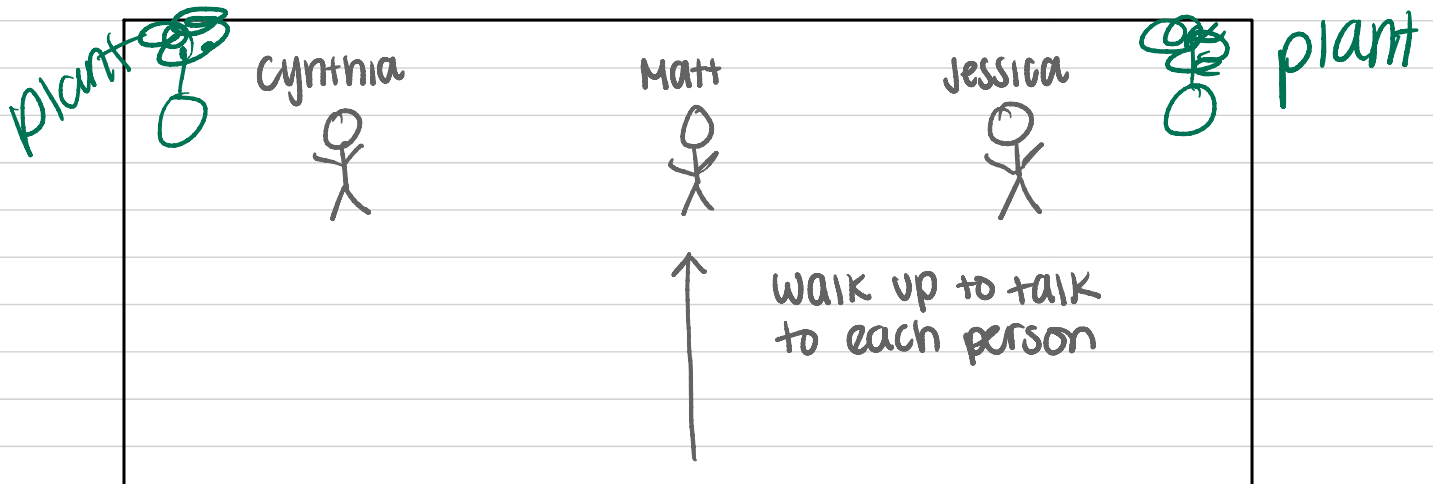 plant
Cynthia
Matt
Jessica
plant
walk up to talk
to each person